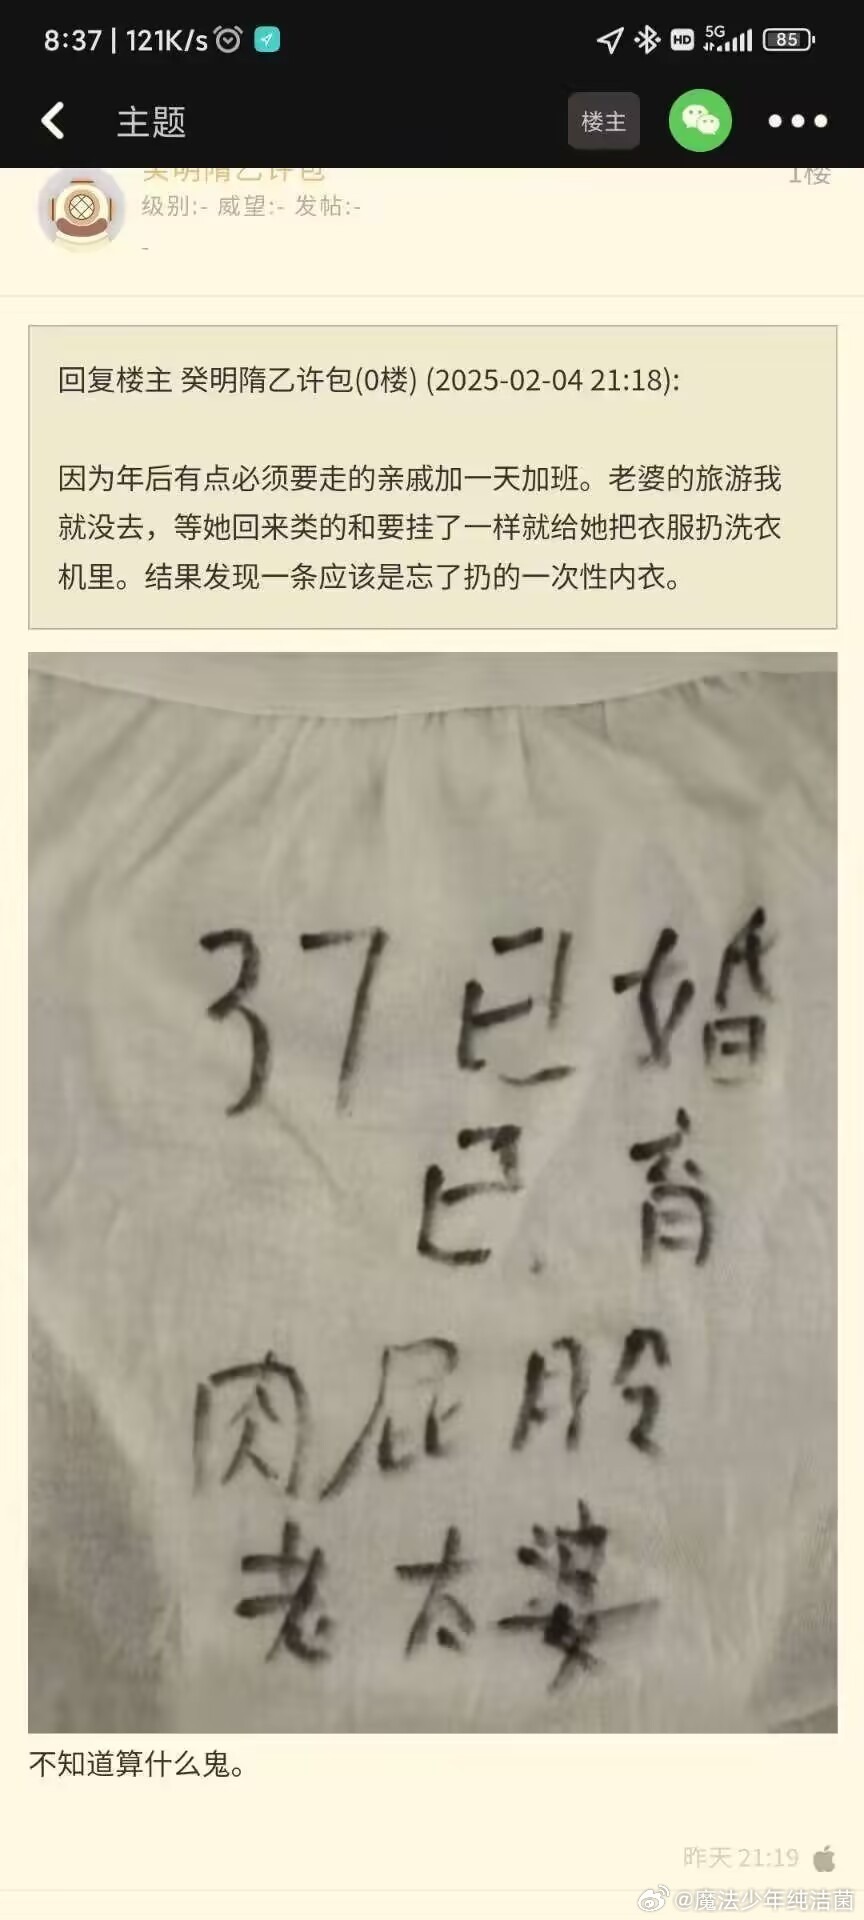 8:37 | 121K/s
HD 5G 85
主题 楼主
癸明隋乙许包
1楼
级别:- 威望:- 发帖:-
-
回复楼主 癸明隋乙许包(0楼) (2025-02-04 21:18):
因为年后有点必须要走的亲戚加一天加班。老婆的旅游我
就没去，等她回来类的和要挂了一样就给她把衣服扔洗衣
机里。结果发现一条应该是忘了扔的一次性内衣。
37已婚
已育
肉屁股
老太婆
不知道算什么鬼。
昨天 21:19
@魔法少年纯洁菌